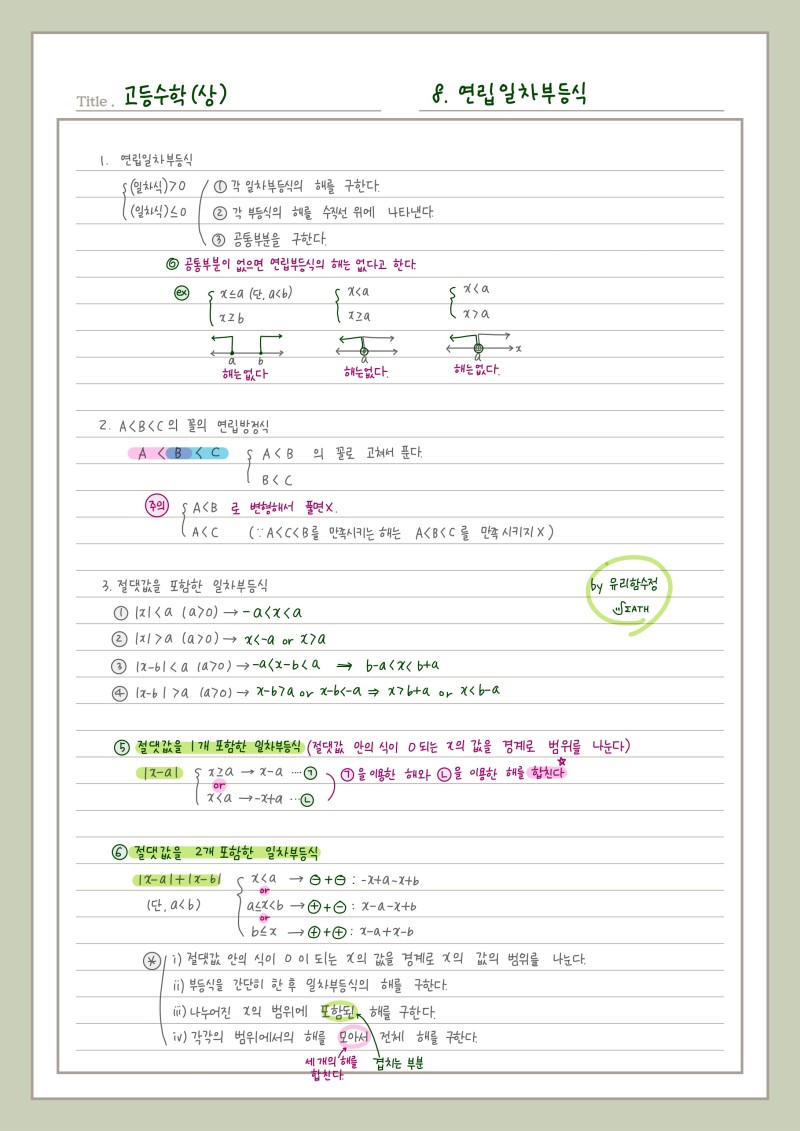 Title . 고등수학(상) 8. 연립일차부등식
1. 연립일차부등식
(일차식)>0 ① 각 일차부등식의 해를 구한다.
(일차식)≤0 ② 각 부등식의 해를 수직선 위에 나타낸다.
③ 공통부분을 구한다.
◎ 공통부분이 없으면 연립부등식의 해는 없다고 한다.
ex x≤a (단, a<b) x<a x<a
x≥b x≥a x>a
a b a a x
해는없다 해는없다. 해는없다.
2. A<B<C의 꼴의 연립방정식
A < B < C A<B 의 꼴로 고쳐서 푼다.
B<C
주의 A<B 로 변형해서 풀면X.
A<C (∵A<C<B를 만족시키는 해는 A<B<C를 만족시키지X)
3. 절댓값을 포함한 일차부등식
by 유리함수정
MATH
① |x|<a (a>0) → -a<x<a
② |x|>a (a>0) → x<-a or x>a
③ |x-b|<a (a>0) → -a<x-b<a ⇒ b-a<x<b+a
④ |x-b|>a (a>0) → x-b>a or x-b<-a ⇒ x>b+a or x<b-a
⑤ 절댓값을 1개 포함한 일차부등식 (절댓값 안의 식이 0되는 x의 값을 경계로 범위를 나눈다)
|x-a| x≥a → x-a ····㉠ ㉠을 이용한 해와 ㉡을 이용한 해를 합친다☆
or
x<a → -x+a ···㉡
⑥ 절댓값을 2개 포함한 일차부등식
|x-a|+|x-b| x<a → ⊖+⊖ : -x+a-x+b
or
(단, a<b) a≤x<b → ⊕+⊖ : x-a-x+b
or
b≤x → ⊕+⊕ : x-a+x-b
* i) 절댓값 안의 식이 0이 되는 x의 값을 경계로 x의 값의 범위를 나눈다.
ii) 부등식을 간단히 한 후 일차부등식의 해를 구한다.
iii) 나누어진 x의 범위에 포함된 해를 구한다.
iv) 각각의 범위에서의 해를 모아서 전체 해를 구한다.
세 개의 해를 겹치는 부분
합친다.